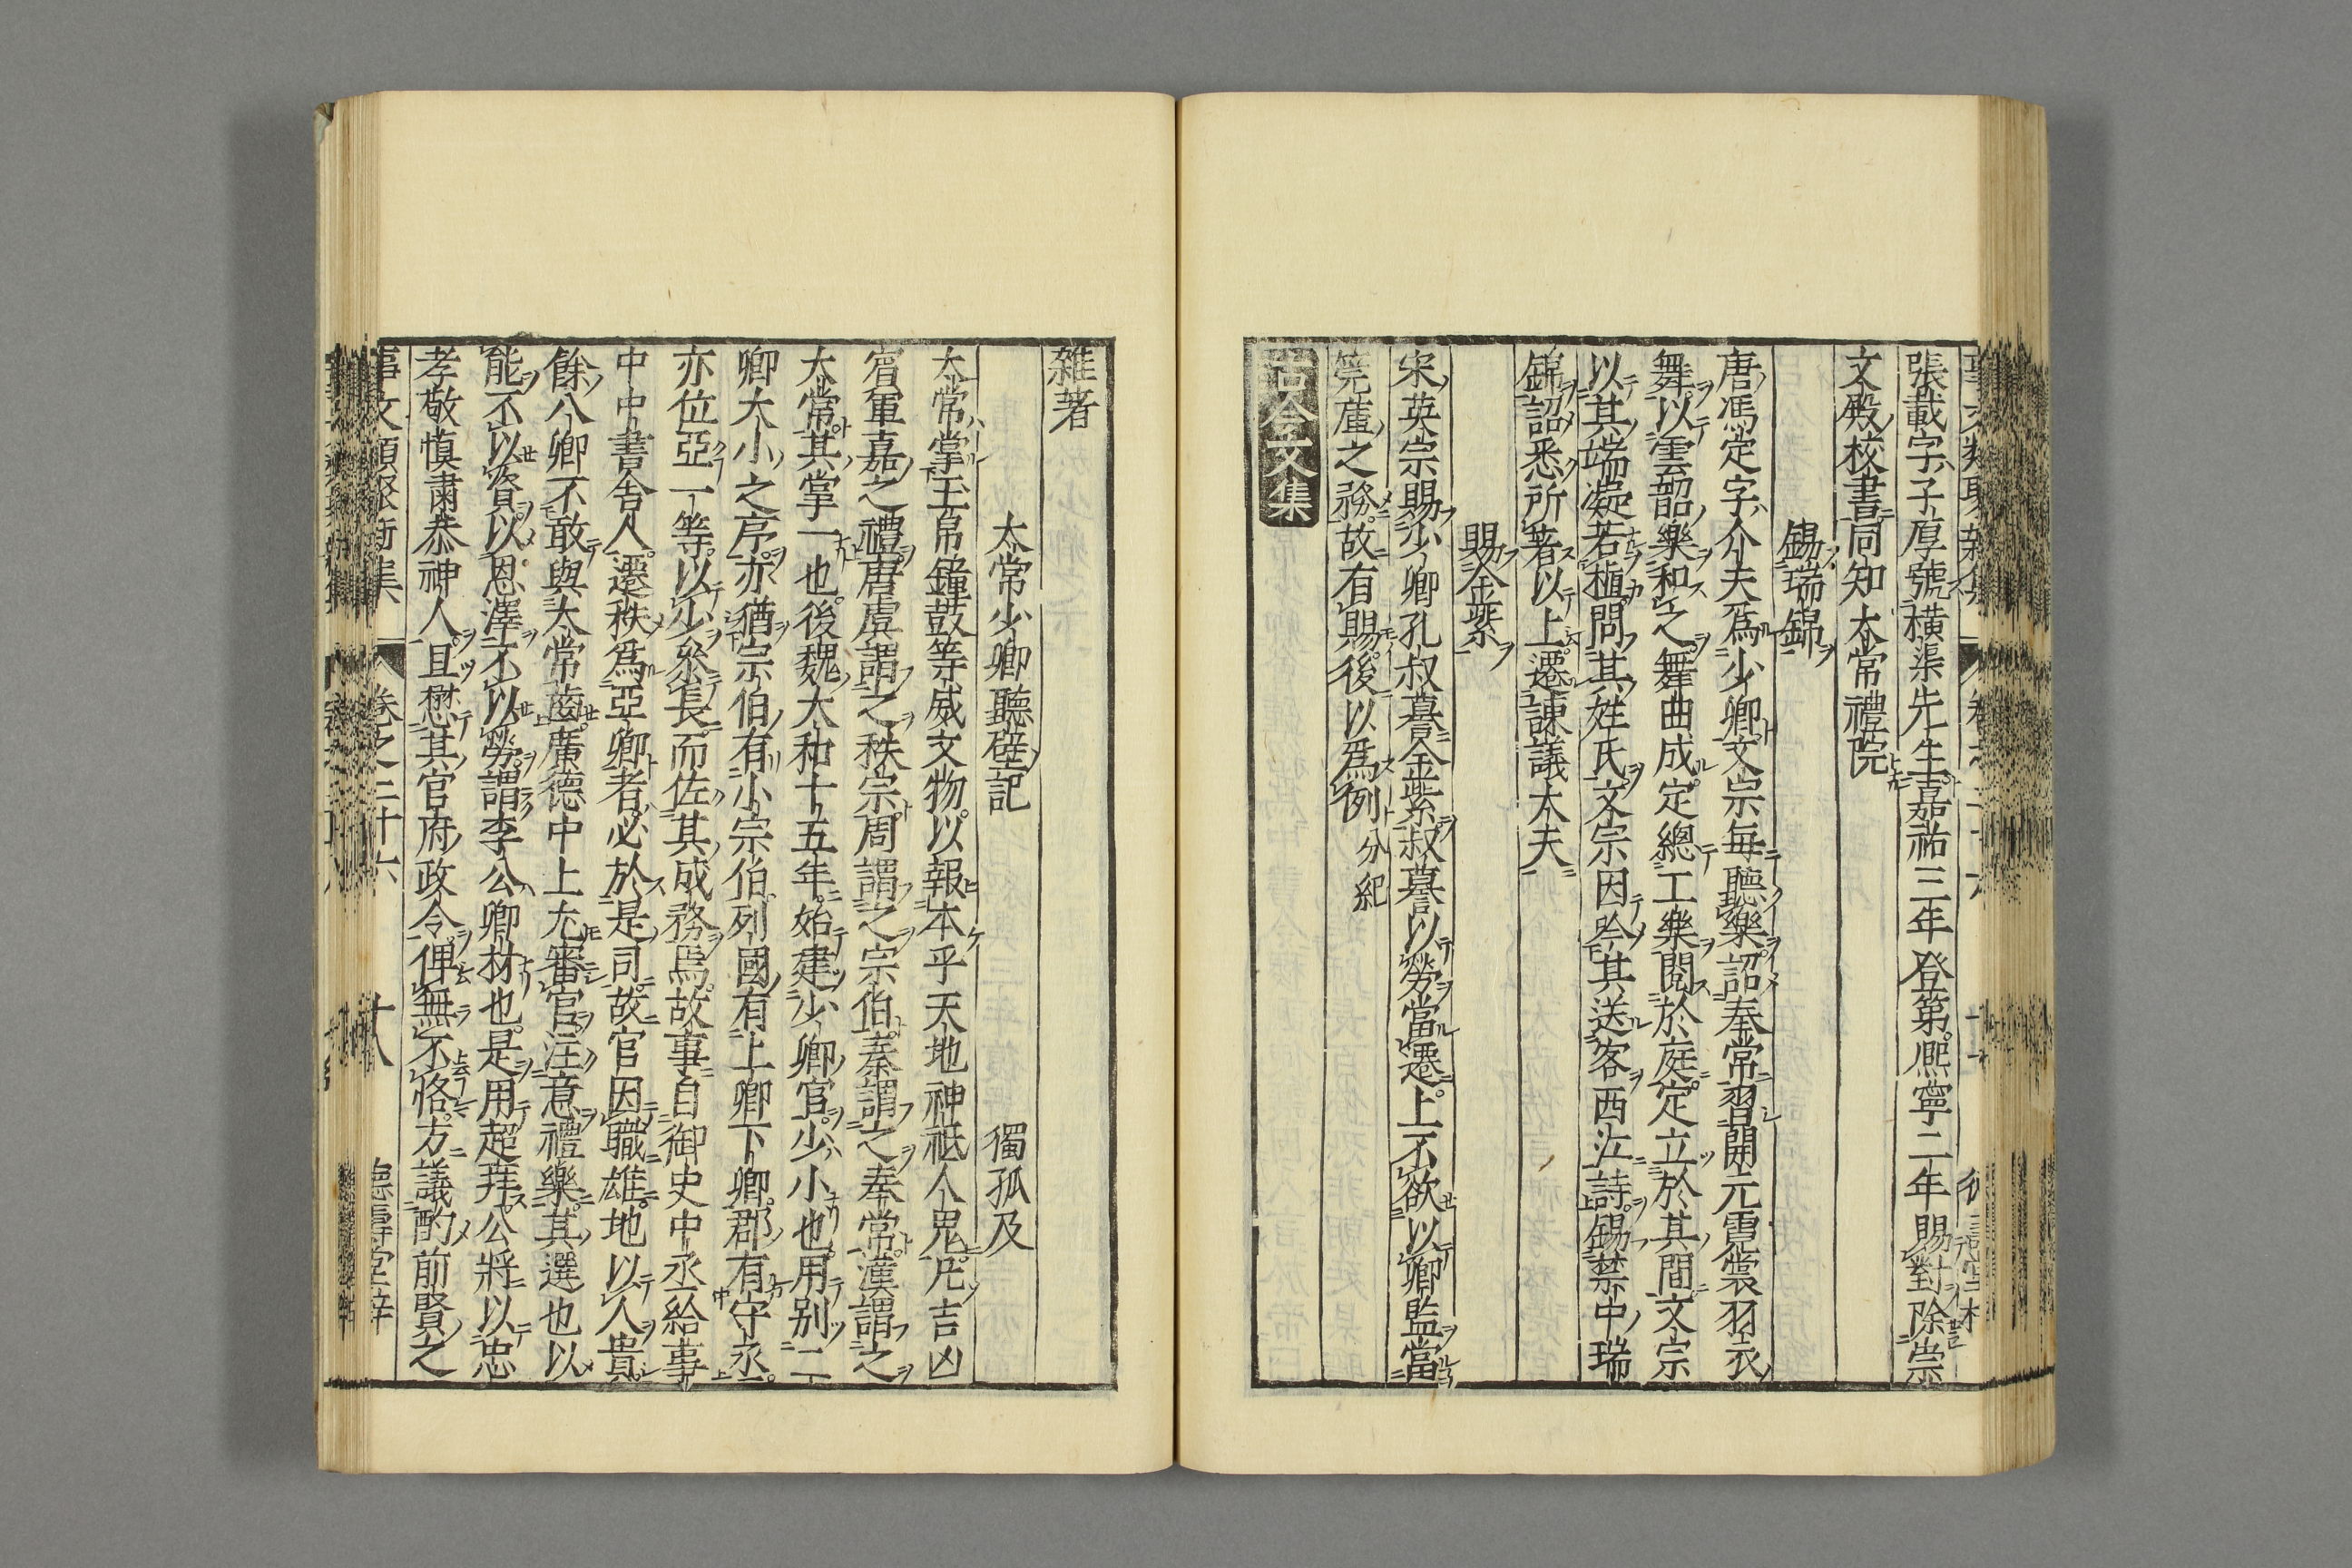 張載字子厚號横渠先生嘉祐三年登第熈寧二年賜對除崇
文殿校書同知太常禮院
錫瑞錦
唐馮定字介夫爲少卿文宗毎聽樂詔奉常習開元霓裳羽衣
舞以雲韶樂和之舞曲成定總工樂閲於庭定立於其間文宗
以其端凝若植問其姓氏文宗因吟其送客西江詩錫禁中瑞
錦詔悉所著以上遷諌議大夫
賜金紫
宋英宗賜少卿孔叔
金紫叔
以勞當遷上不欲以卿監當
筦蘆之務故有賜後以爲例 分紀
古今文集
雜著
太常少卿聽壁記 獨孤及
太常掌玉帛鐘鼓等威文物以報本乎天地神祗人鬼凡吉凶
賓軍嘉之禮唐虞謂之秩宗周謂之宗伯秦謂之奉常漢謂之
大常其掌一也後魏大和十五年始建少卿官少小也用别二
卿大小之序亦猶宗伯有小宗伯列國有上卿下卿郡有守丞
亦位亞一等以少糸長而佐其成務焉故事自御史中丞給事
中中書舎人遷秩爲亞卿者必於是司故官因職雄地以人貴
餘八卿不敢與太常齒廣德中上尤審官注意禮樂其選也以
能不以資以恩澤不以勞謂李公卿材也是用超拜公將以忠
孝敬慎肅恭神人且懋其官府政令俾無不恪方議酌前賢之
事文類聚新集 卷之三十六 十八 德壽堂梓